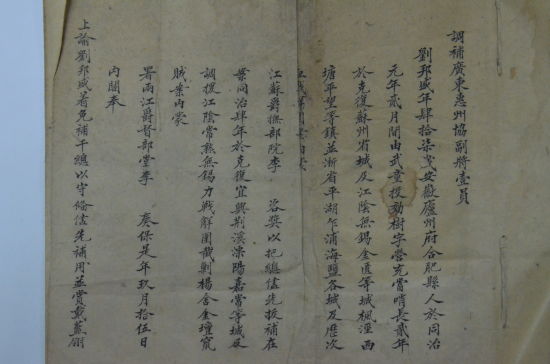 調補廣東惠州協副將壹員
劉邦盛年肆拾柒歲安徽廬州府合肥縣人於同治
元年貳月間由武童投効樹字營充當哨長貳年
於克復蘇州省城及江陰無錫金匱等城楓涇西
塘平望等鎮並浙省平湖乍浦海鹽各城及歷次
江蘇爵撫部院李 咨獎以把總儘先拔補在
案同治肆年於克復宜興荆溪溧陽嘉常等城及
調援江陰常熟無錫力戰解圍截剿楊舍金壇竄
賊案內蒙
署兩江爵督部堂李 奏保是年玖月拾伍日
內閣奉
上諭劉邦盛著免補千總以守備儘先補用並賞戴藍翎